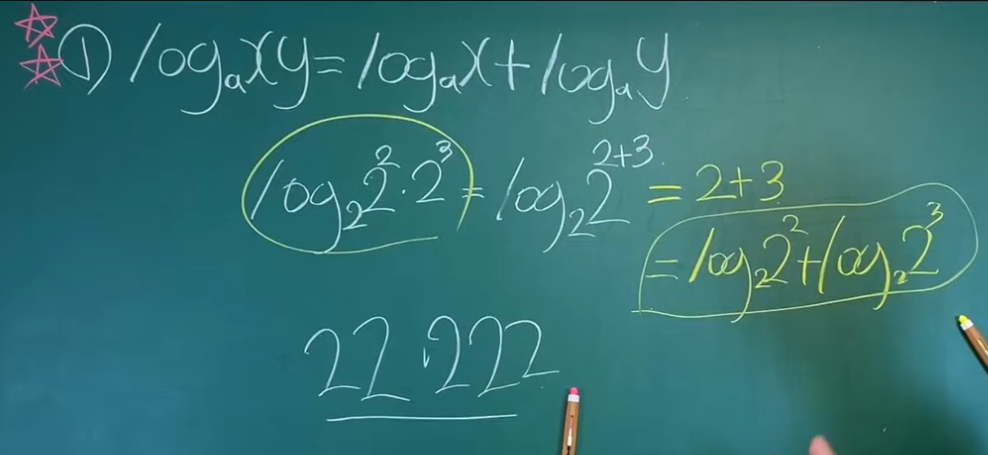 ① logₐxy=logₐx+logₐy
log₂2²·2³=log₂2²⁺³=2+3
=log₂2²+log₂2³
22·222